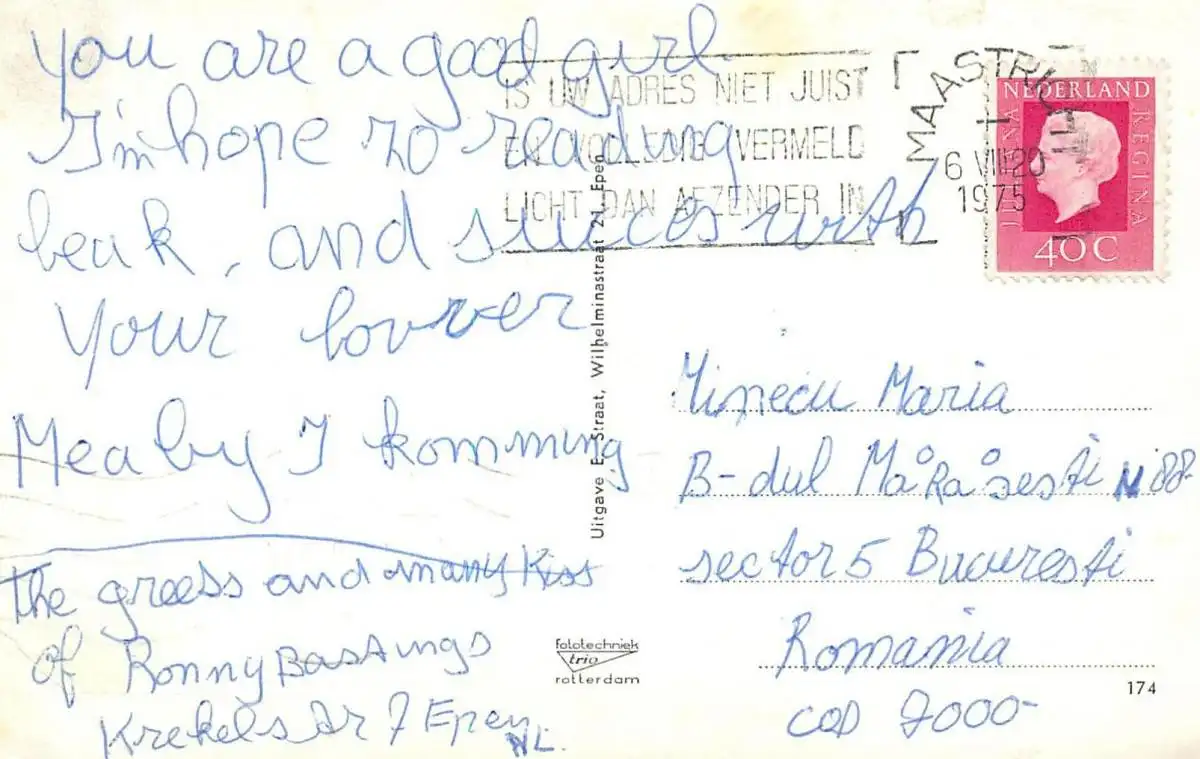 you are a good girl.
I'm hope zo reading
beak, and succes with
your lovver
Meaby I komming
The greebs and many Kiss
of Ronny Bastings
Krekelstr 7 Epen
NL.
IS UW ADRES NIET JUIST
EN VOLLEDIG VERMELD
LICHT DAN AFZENDER IN
MAASTRICHT
6 VIII 20
1975
NEDERLAND
JULIANA REGINA
40C
Uitgave E. Straat, Wilhelminastraat 21, Epen
Minecu Maria
B-dul Måråsesti N 88-
sector 5 Bucuresti
Romania
cod 7000-
fototechniek
trio
rotterdam
174